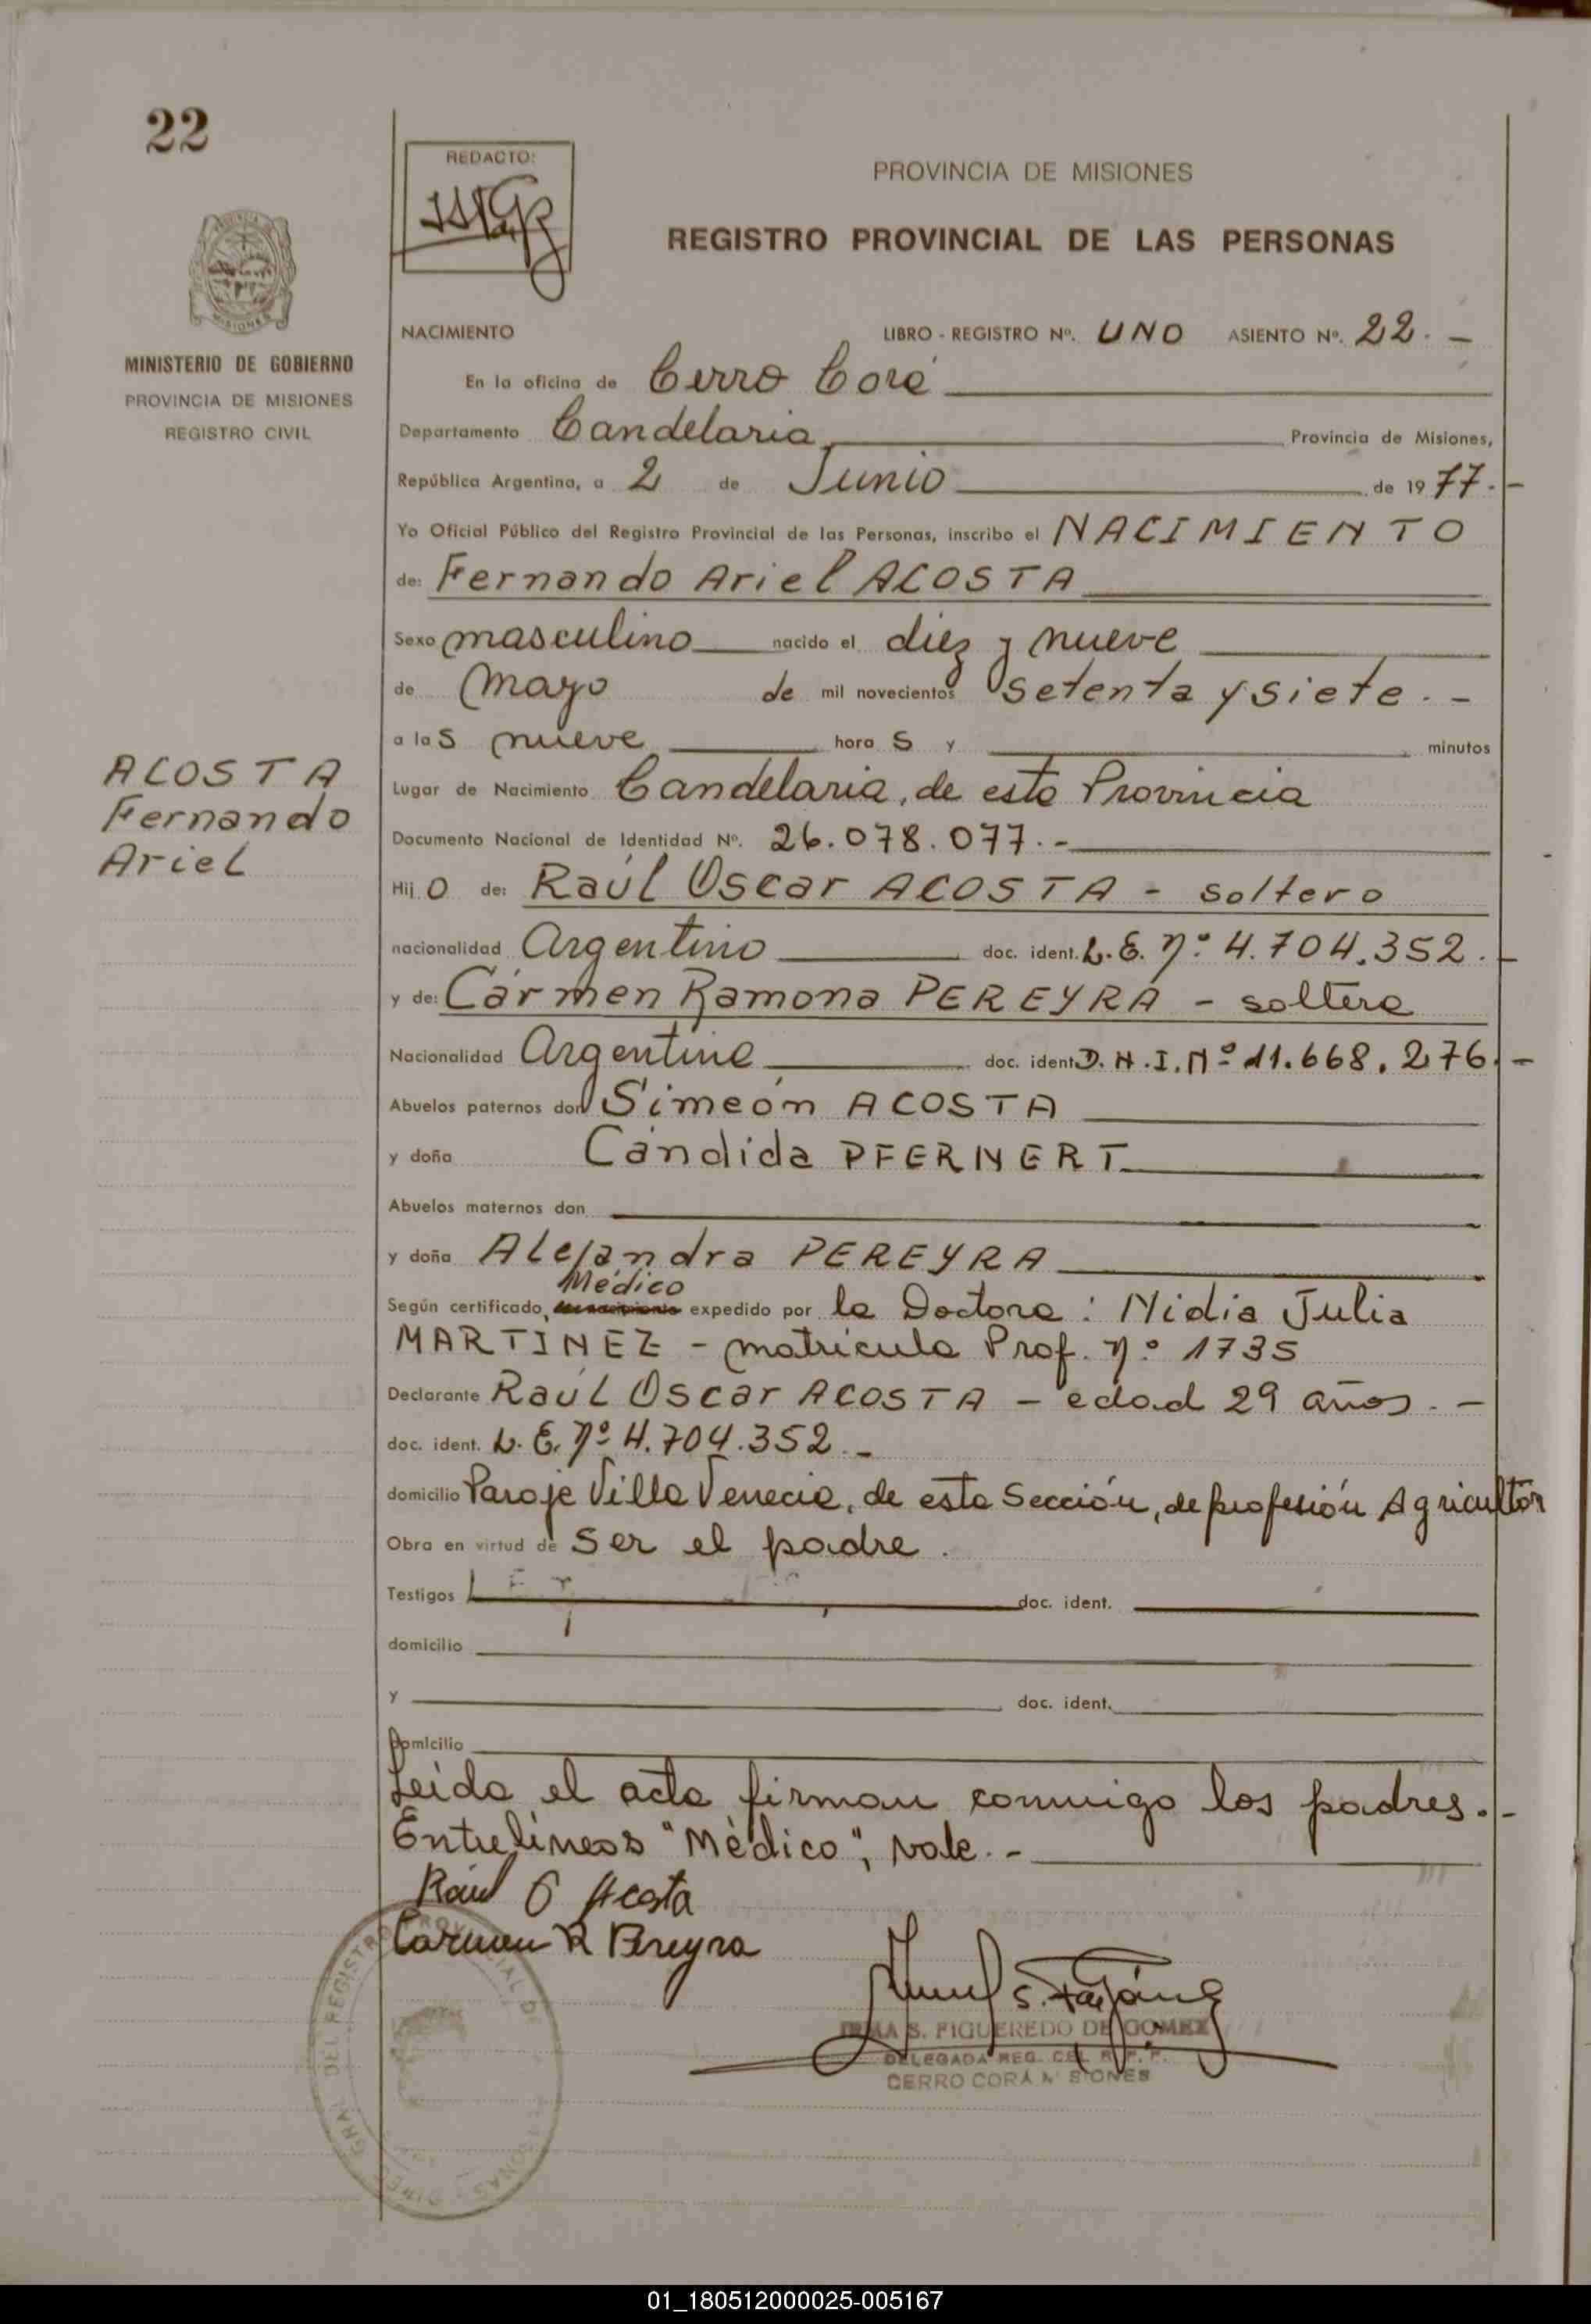 22
REDACTO:
PROVINCIA DE MISIONES
REGISTRO PROVINCIAL DE LAS PERSONAS
MISIONES
MINISTERIO DE GOBIERNO
PROVINCIA DE MISIONES
REGISTRO CIVIL
NACIMIENTO LIBRO - REGISTRO Nº. UNO ASIENTO Nº. 22.-
En la oficina de Cerro Corá
Departamento Candelaria Provincia de Misiones,
República Argentina, a 2 de Junio de 1977.-
Yo Oficial Público del Registro Provincial de las Personas, inscribo el NACIMIENTO
de: Fernando Ariel ACOSTA
Sexo masculino nacido el diez y nueve
de Mayo de mil novecientos setenta y siete.-
a las nueve horas y minutos
ACOSTA
Fernando
Ariel
Lugar de Nacimiento Candelaria, de esta Provincia
Documento Nacional de Identidad Nº. 26.078.077.-
Hijo de: Raúl Oscar ACOSTA - soltero
nacionalidad Argentino doc. ident. L.E. nº 4.704.352.-
y de: Cármen Ramona PEREYRA - soltera
Nacionalidad Argentina doc. ident. D.N.I. Nº 11.668.276.-
Abuelos paternos don Simeón ACOSTA
y doña Cándida PFERNERT
Abuelos maternos don
y doña Alejandra PEREYRA
Médico
Según certificado expedido por la Doctora: Nidia Julia
MARTINEZ - matrícula Prof. nº 1735
Declarante Raúl Oscar ACOSTA - edad 29 años.-
doc. ident. L.E. nº 4.704.352.-
domicilio Paraje Villa Venecia, de esta Sección, de profesión Agricultor
Obra en virtud de ser el padre.
Testigos doc. ident.
domicilio
y doc. ident.
domicilio
Leída el acta firman conmigo los padres.-
Entrelíneas "Médico", vale.-
Raúl O Acosta
Carmen R Pereyra
IRMA S. FIGUEREDO DE GOMEZ
DELEGADA REG. CEL R. P. P.
CERRO CORA MISIONES
DIREC GRAL DEL REGISTRO PROVINCIAL DE PERSONAS
01_180512000025-005167